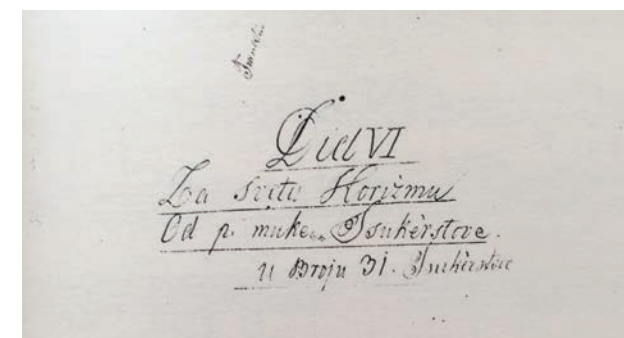 Diel VI
Za Svetu Korizmu
Od p. muke Isukèrstove.
u Broju 31. Isukèrstove